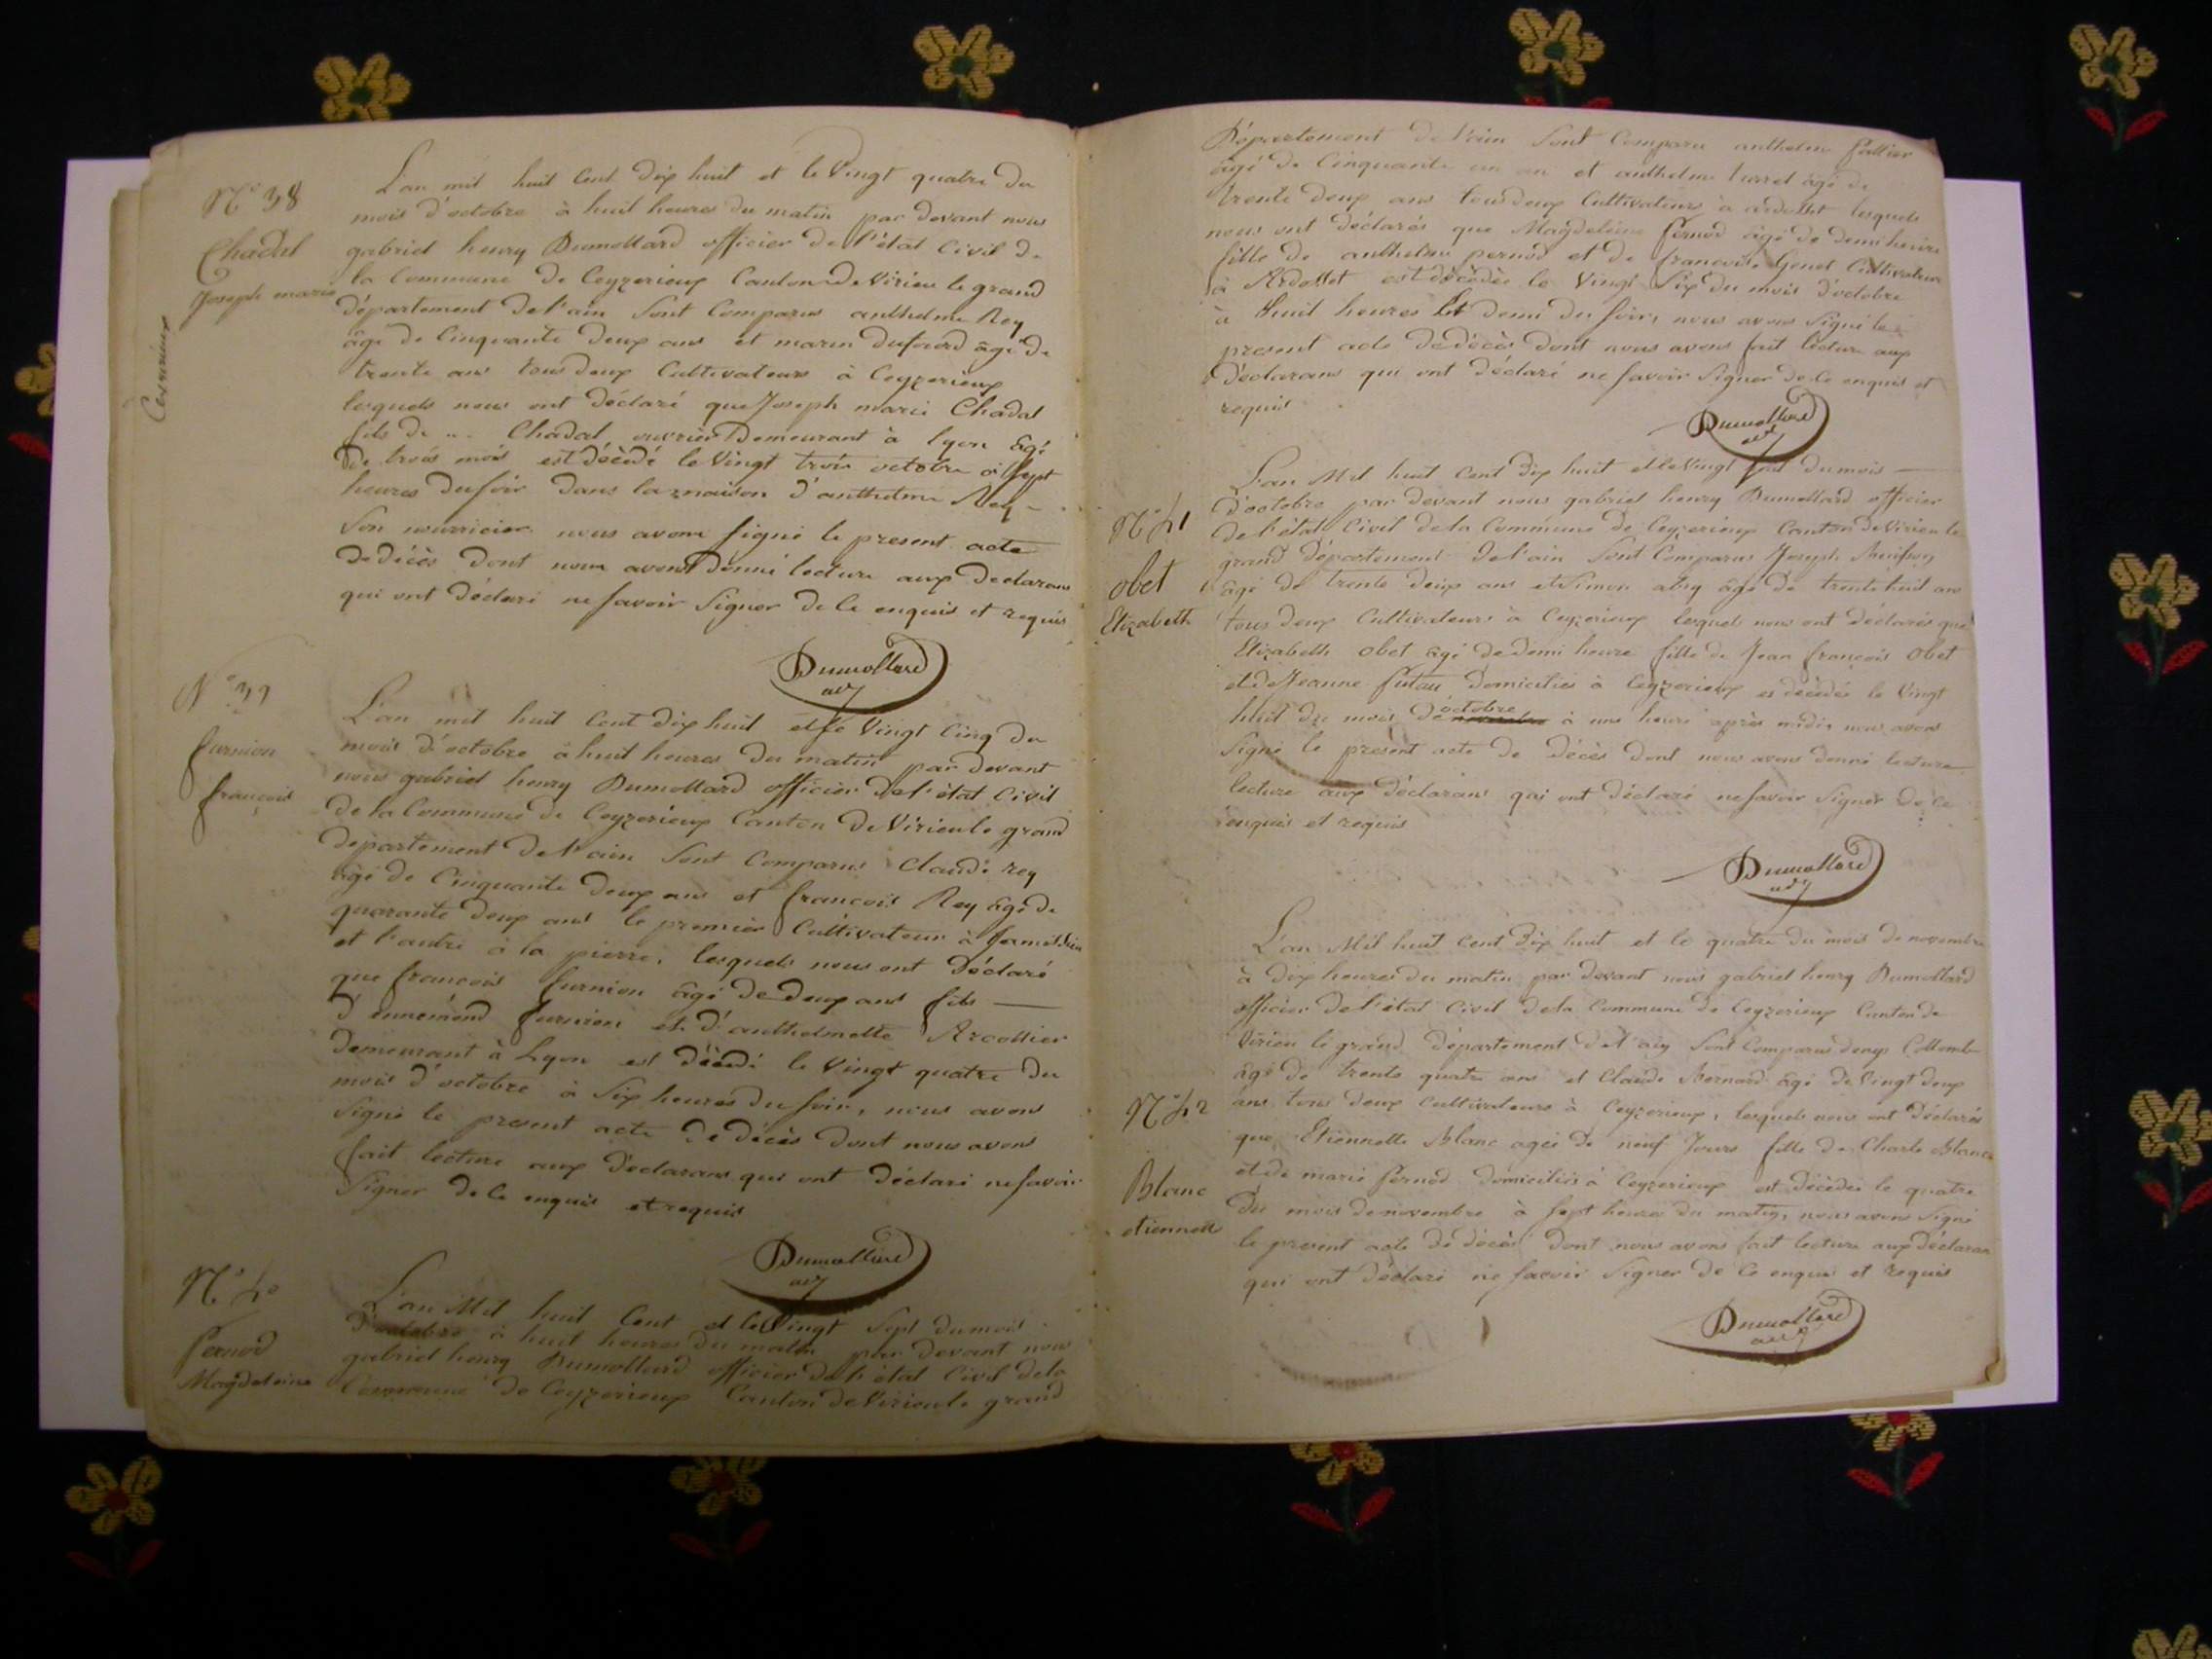 Ceyzerieux
N° 38
Chadal
Joseph marie
L'an mil huit Cent dix huit et le Vingt quatre du
mois d'octobre à huit heures du matin par devant nous
gabriel henry Dumollard officier de l'état Civil de
la Commune de Ceyzerieux Canton de Virieu le grand
département de l'ain Sont Comparus anthelme Rey
âgé de Cinquante deux ans et marin dufourd âgé de
trente ans tous deux Cultivateurs à Ceyzerieux
lesquels nous ont déclaré que Joseph marie Chadal
fils de ... Chadal ouvrier Demeurant à lyon âgé
de trois mois est décédé le Vingt trois octobre à sept
heures du soir dans la maison d'anthelme Rey
Son nourricier nous avons signé le present acte
de décès dont nous avons donné lecture aux declarans
qui ont déclaré ne savoir Signer de Ce enquis et requis
Dumollard
adj
N° 39
furnion
françois
L'an mil huit Cent dix huit et le Vingt Cinq du
mois d'octobre à huit heures du matin par devant
nous gabriel henry Dumollard officier de l'état Civil
de la Commune de Ceyzerieux Canton de Virieu le grand
departement de l'ain Sont Comparus Claude rey
âgé de Cinquante deux ans et françois Rey âgé de
quarante deux ans le premier Cultivateur à
et l'autre à la pierre, lesquels nous ont déclaré
que françois furnion âgé de deux ans fils
d'ennémond furnion et d'anthelmette Arcollier
demeurant à Lyon est décédé le Vingt quatre du
mois d'octobre à Six heures du soir, nous avons
signé le present acte de décès dont nous avons
fait lecture aux déclarans qui ont déclaré ne savoir
Signer de Ce enquis et requis
Dumollard
adj
N° 40
Pernod
Magdeleine
L'an Mil huit Cent et le Vingt Sept du mois
d'octobre à huit heures du matin par devant nous
gabriel henry Dumollard officier de l'état Civil de la
Commune de Ceyzerieux Canton de Virieu le grand
Département de l'ain Sont Comparu anthelme
âgé de Cinquante un an et anthelme âgé de
trente deux ans tous deux Cultivateurs à ardosset lesquels
nous ont déclarés que Magdeleine Pernod âgé de demi heure
fille de anthelme pernod et de françoise Genet Cultivateur
à Ardosset est décédée le Vingt Six du mois d'octobre
à huit heures et demi du soir, nous avons Signé le
present acte de décès dont nous avons fait lecture aux
déclarans qui ont déclaré ne savoir signer de Ce enquis et
requis
Dumollard
adj
N° 41
obet
Elizabeth
L'an Mil huit Cent dix huit et le Vingt du mois
d'octobre par devant nous gabriel henry Dumollard officier
de l'état Civil de la Commune de Ceyzerieux Canton de Virieu le
grand département de l'ain Sont Comparus Joseph
âgé de trente deux ans et Simon abry âgé de trente huit ans
tous deux Cultivateurs à Ceyzerieux lesquels nous ont déclarés que
Elizabeth obet âgé de demi heure fille de Jean françois obet
et de Jeanne domiciliés à Ceyzerieux es décédée le Vingt
huit du mois de octobre à une heure après midi, nous avons
Signé le présent acte de décès dont nous avons donné lecture
lecture aux déclarans qui ont déclaré ne savoir signer de Ce
enquis et requis
Dumollard
adj
N° 42
Blanc
etiennette
L'an Mil huit Cent dix huit et le quatre du mois de novembre
à dix heures du matin par devant nous gabriel henry Dumollard
officier de l'état Civil de la Commune de Ceyzerieux Canton de
Virieu le grand département de l'ain Sont Comparus denys Collomb
âgé de trente quatre ans et Claude Bernard âgé de Vingt deux
ans tous deux Cultivateurs à Ceyzerieux, lesquels nous ont déclarés
que Etiennette Blanc agée de neuf Jours fille de Charle Blanc
et de marie Pernod domiciliés à Ceyzerieux est décédée le quatre
du mois de novembre à sept heures du matin, nous avons Signé
le present acte de décès dont nous avons fait lecture aux déclarans
qui ont déclaré ne savoir Signer de Ce enquis et requis
Dumollard
adj